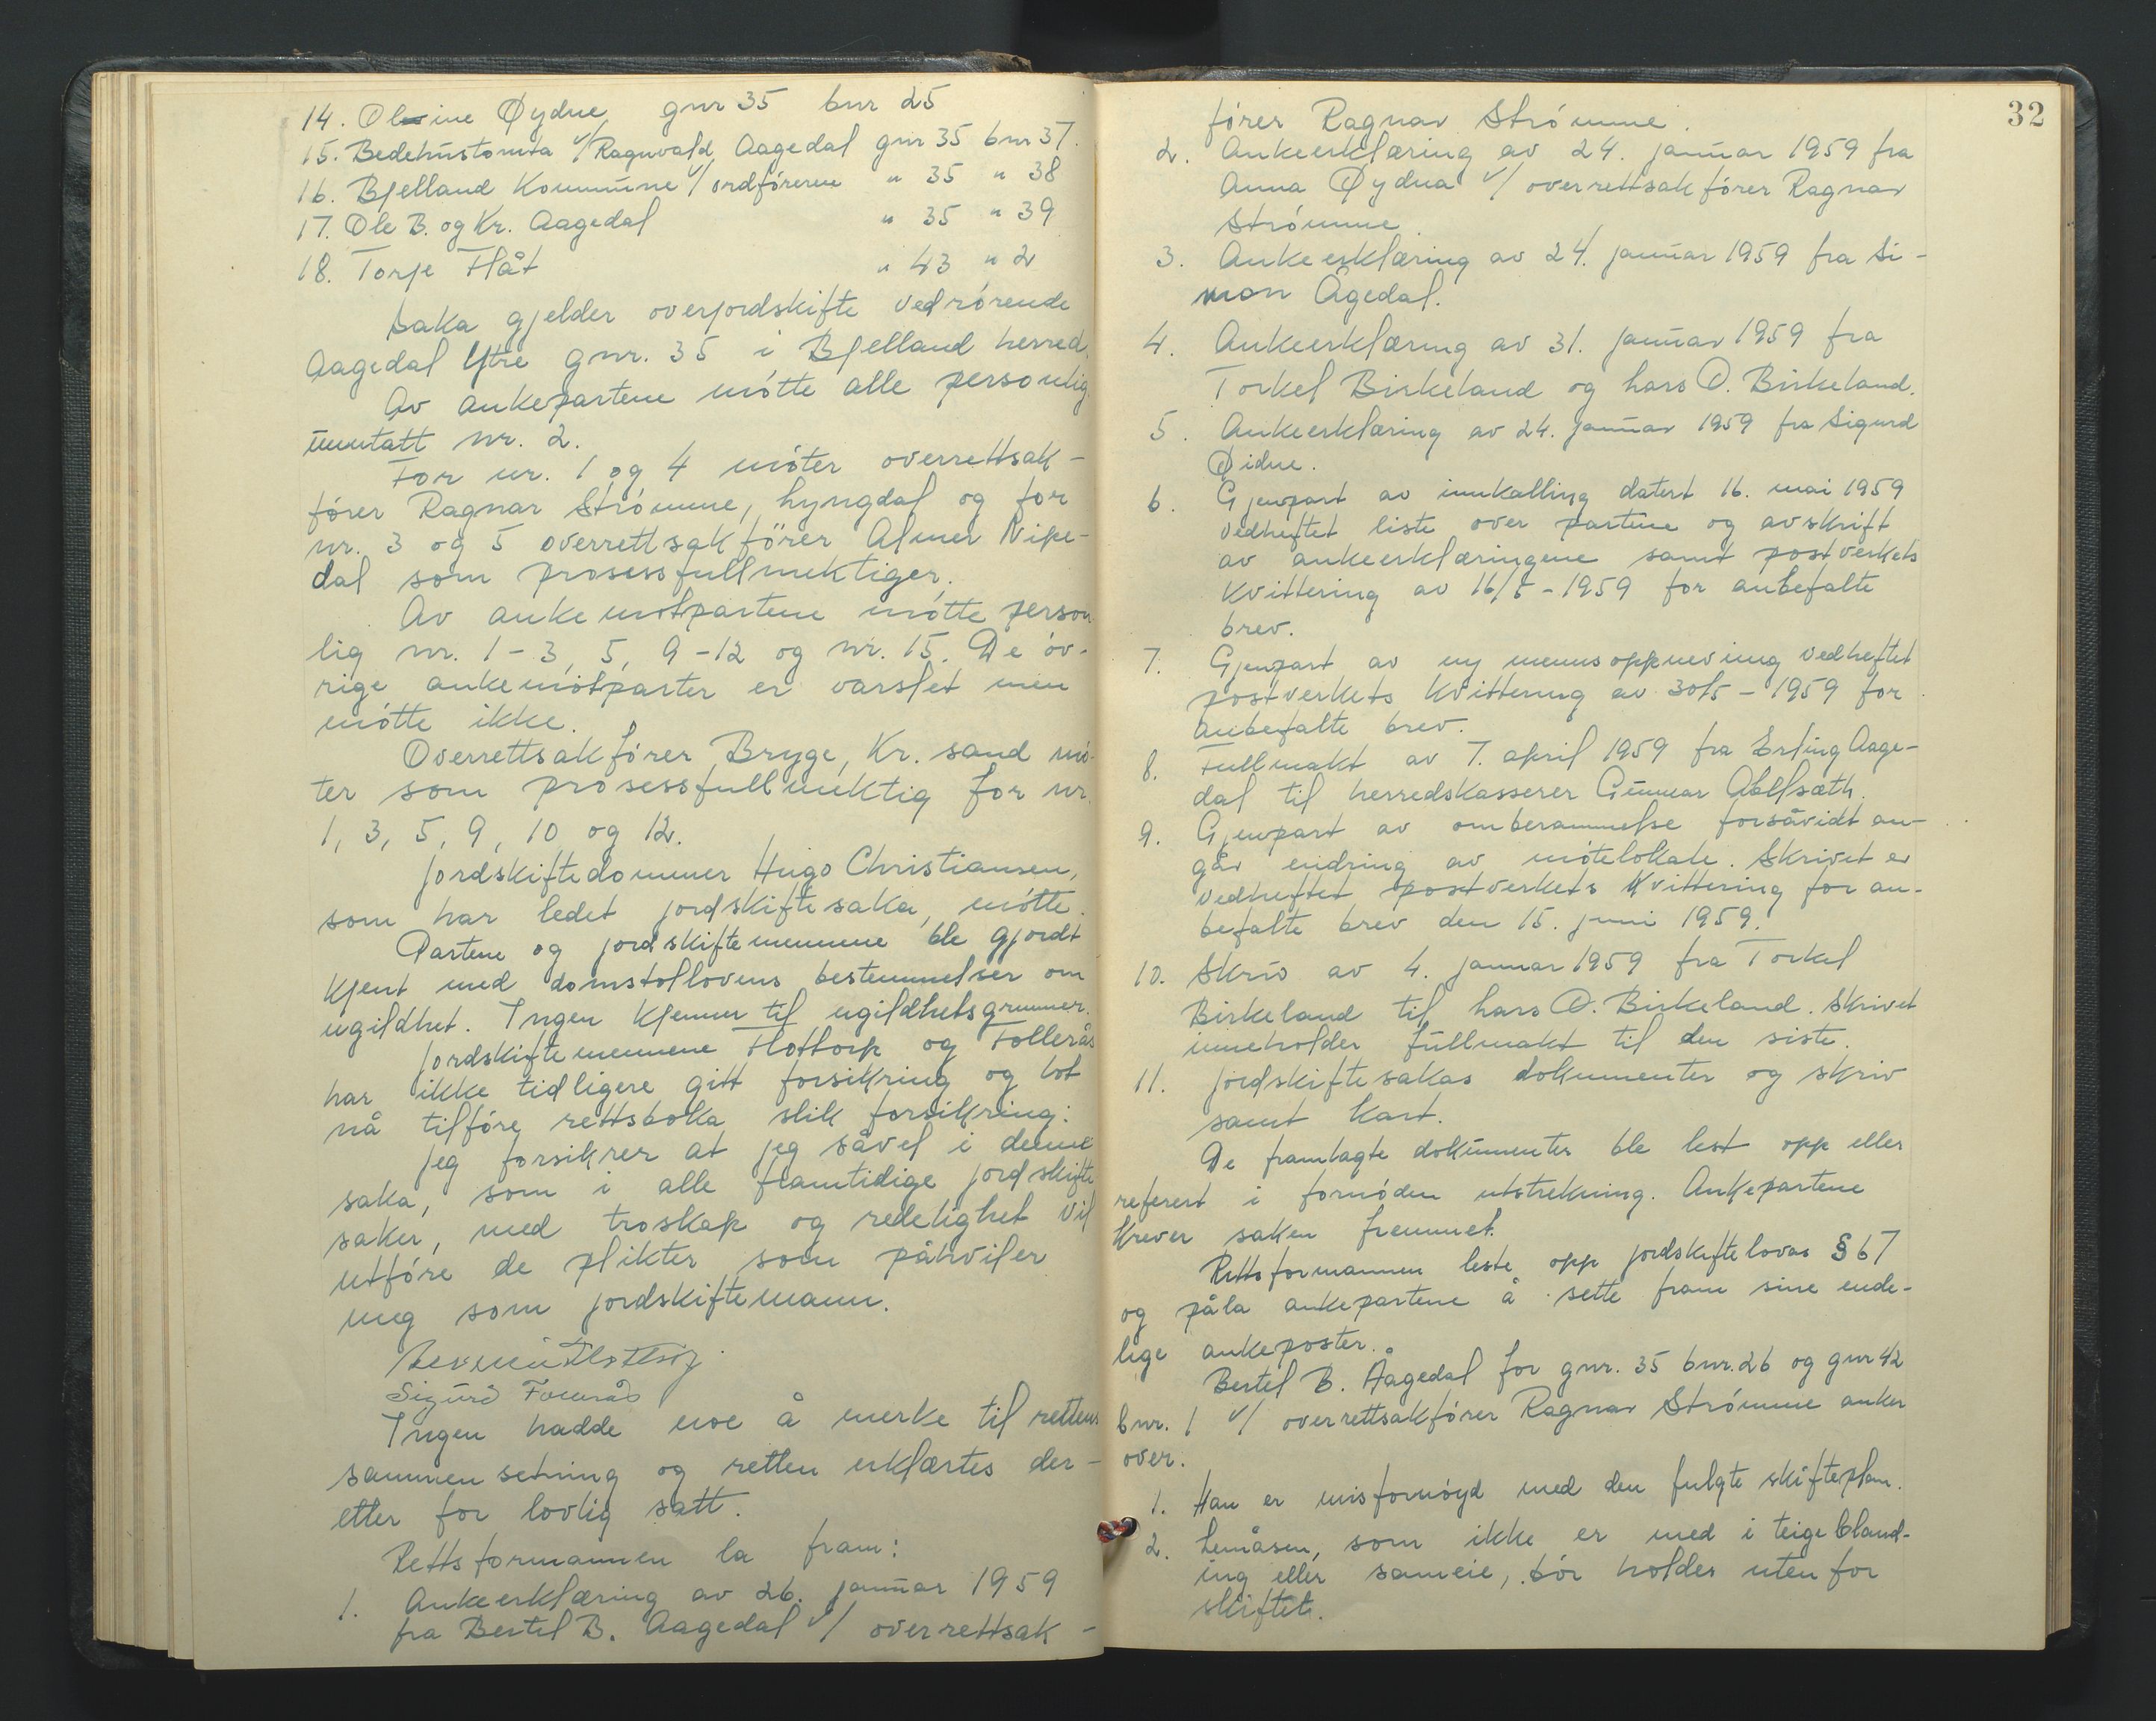 14. Oline Øydne gnr 35 bnr 25
15. Bedehustomta v/Ragnvald Aagedal gnr 35 bnr 37.
16. Bjelland Kommune v/ ordføreren " 35 " 38
17. Ole B. og Kr. Aagedal " 35 " 39
18. Torje Flåt " 43 " 2
Saka gjelder overjordskifte vedrørende
Aagedal Ytre gnr. 35 i Bjelland herred.
Av ankepartene møtte alle personlig
unntatt nr. 2.
For nr. 1 og 4 møter overrettsak-
fører Ragnar Strømme, Lyngdal og for
nr. 3 og 5 overrettsakfører Almer Nipe-
dal som prosessfullmektiger.
Av ankemotpartene møtte person
lig nr. 1-3, 5, 9-12 og nr. 15. De øv-
rige ankemotparter er varslet men
møtte ikke.
Overrettsakfører Bryge, Kr. sand mø-
ter som prosessfullmektig for nr.
1, 3, 5, 9, 10 og 12.
Jordskiftedommer Hugo Christiansen,
som har ledet jordskiftesaka, møtte.
Partene og jordskiftemennene ble gjordt
kjent med domstollovens bestemmelser om
ugildhet. Ingen kjenner til ugildhetsgrunner.
Jordskiftemennene Flottorp og Follerås
har ikke tidligere gitt forsikring og lot
nå tilføre rettsboka slik forsikring:
Jeg forsikrer at jeg såvel i denne
saka, som i alle framtidige jordskifte
saker, med troskap og redelighet vil
utføre de plikter som påhviler
meg som jordskiftemann.
Sigurd Follerås
Ingen hadde noe å merke til rettens
sammensetning og retten erklærtes der-
etter for lovlig satt.
Rettsformannen la fram:
1. Ankeerklæring av 26. januar 1959
fra Bertel B. Aagedal v/ overrettsak-
32
fører Ragnar Strømme.
2. Ankeerklæring av 24. januar 1959 fra
Anna Øydna v/ overrettsakfører Ragnar
Strømme.
3. Ankeerklæring av 24. januar 1959 fra Si-
mon Ågedal.
4. Ankeerklæring av 31. januar 1959 fra
Torkel Birkeland og Lars O. Birkeland.
5. Ankeerklæring av 24. januar 1959 fra Sigurd
Øidne.
6. Gjenpart av innkalling datert 16. mai 1959
vedheftet liste over partene og avskrift
av ankeerklæringene samt postverkets
kvittering av 16/5-1959 for anbefalte
brev.
7. Gjenpart av ny mennsoppnevning vedheftet
postverkets kvittering av 30/5-1959 for
anbefalte brev.
8. Fullmakt av 7. april 1959 fra Erling Aage-
dal til herredskasserer Gunnar Abelsæth.
9. Gjenpart av omberammelse forsåvidt an-
går endring av møtelokale. Skrivet er
vedheftet postverkets kvittering for an-
befalte brev den 15. juni 1959.
10. Skriv av 4. januar 1959 fra Torkel
Birkeland til Lars O. Birkeland. Skrivet
inneholder fullmakt til den siste.
11. Jordskiftesakas dokumenter og skriv
samt kart.
De framlagte dokumenter ble lest opp eller
referert i fornøden utstrekning. Ankepartene
krever saken fremmet.
Rettsformannen leste opp jordskiftelovas § 67
og påla ankepartene å sette fram sine ende-
lige ankeposter.
Bertel B. Ågedal for gnr. 35 bnr. 26 og gnr 42
bnr. 1 v/ overrettsakfører Ragnar Strømme anker
over.
1. Han er misfornøyd med den fulgte skifteplan.
2. Lemåsen, som ikke er med i teigebland-
ing eller sameie, bør holdes utenfor
skiftet.